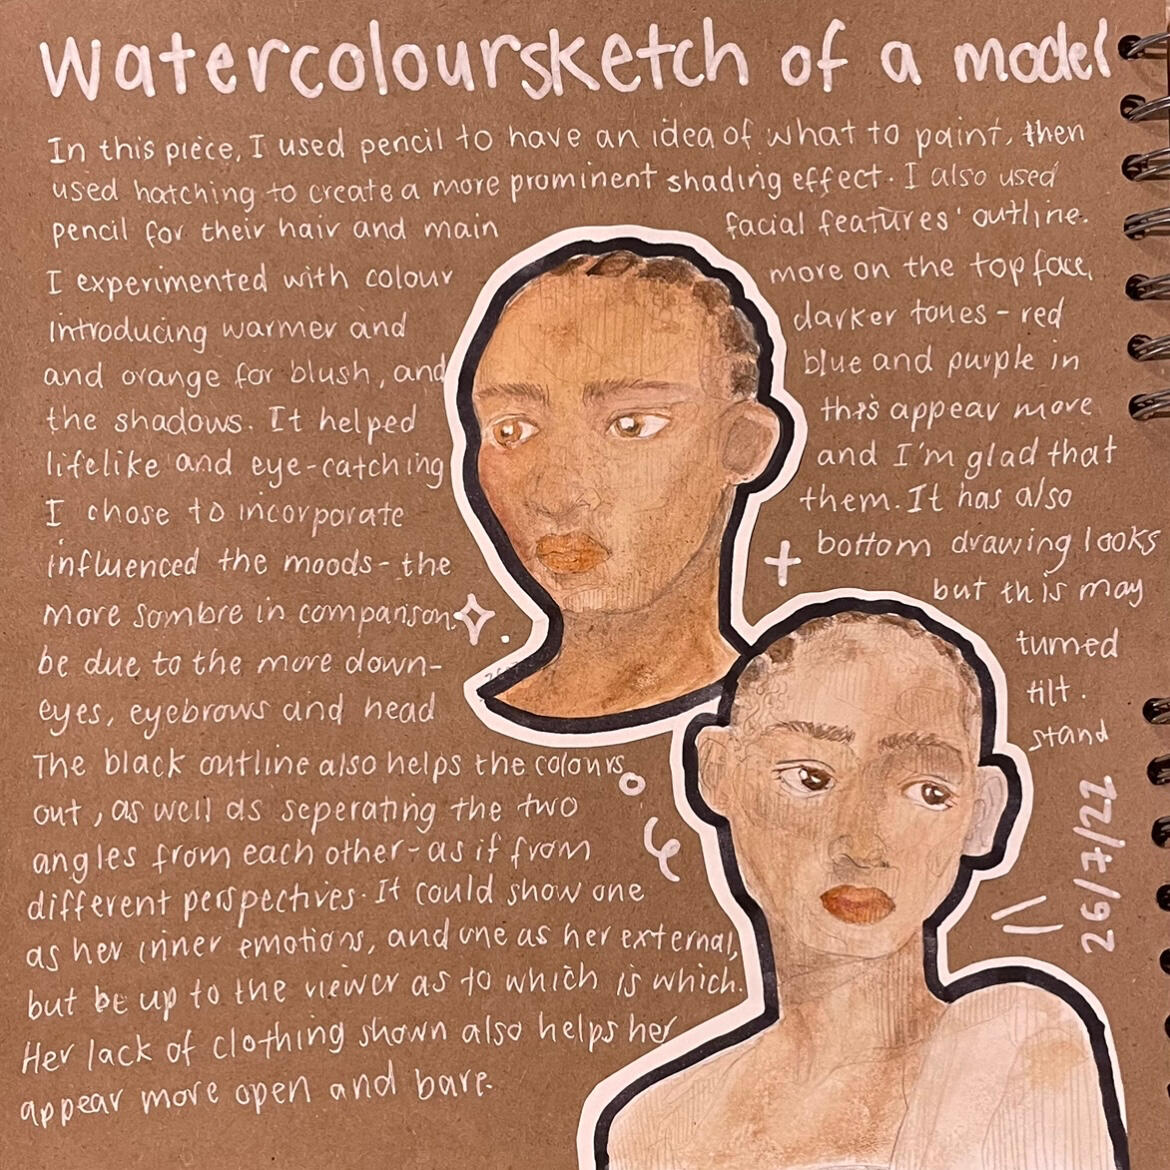 watercoloursketch of a model
In this piece, I used pencil to have an idea of what to paint, then
used hatching to create a more prominent shading effect. I also used
pencil for their hair and main facial features' outline.
I experimented with colour more on the top face,
introducing warmer and darker tones - red
and orange for blush, and blue and purple in
the shadows. It helped this appear more
lifelike and eye-catching and I'm glad that
I chose to incorporate them. It has also
influenced the moods - the bottom drawing looks
more sombre in comparison, but this may
be due to the more down- turned
eyes, eyebrows and head tilt.
The black outline also helps the colours stand
out, as well as seperating the two
angles from each other - as if from
different perspectives. It could show one
as her inner emotions, and one as her external,
but be up to the viewer as to which is which.
Her lack of clothing shown also helps her
appear more open and bare.
26/7/22